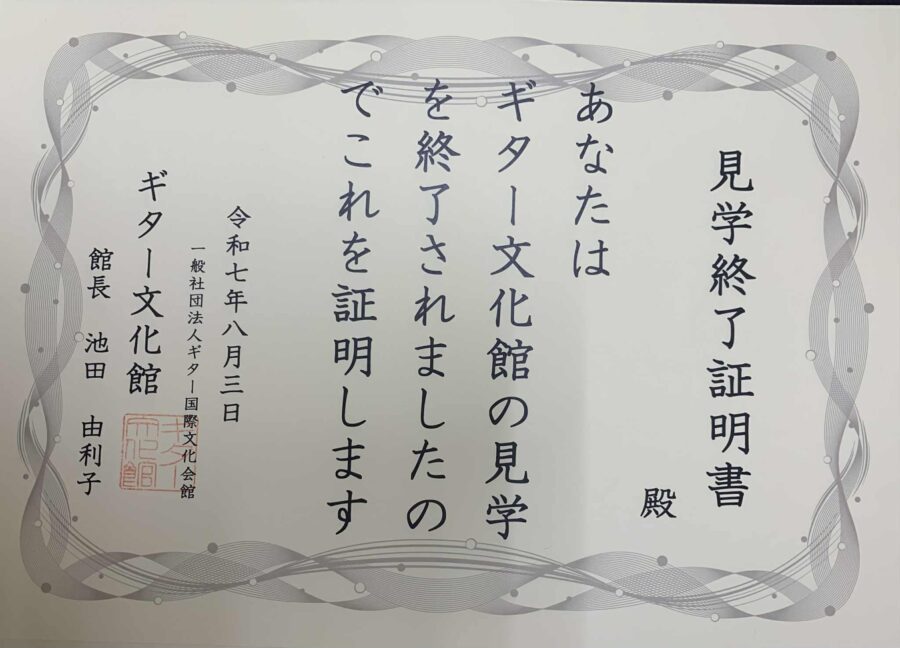 見学終了証明書
殿
あなたは
ギター文化館の見学
を終了されましたの
でこれを証明します
令和七年八月三日
一般社団法人ギター国際文化会館
ギター文化館
館長 池田 由利子
ギター
文化館